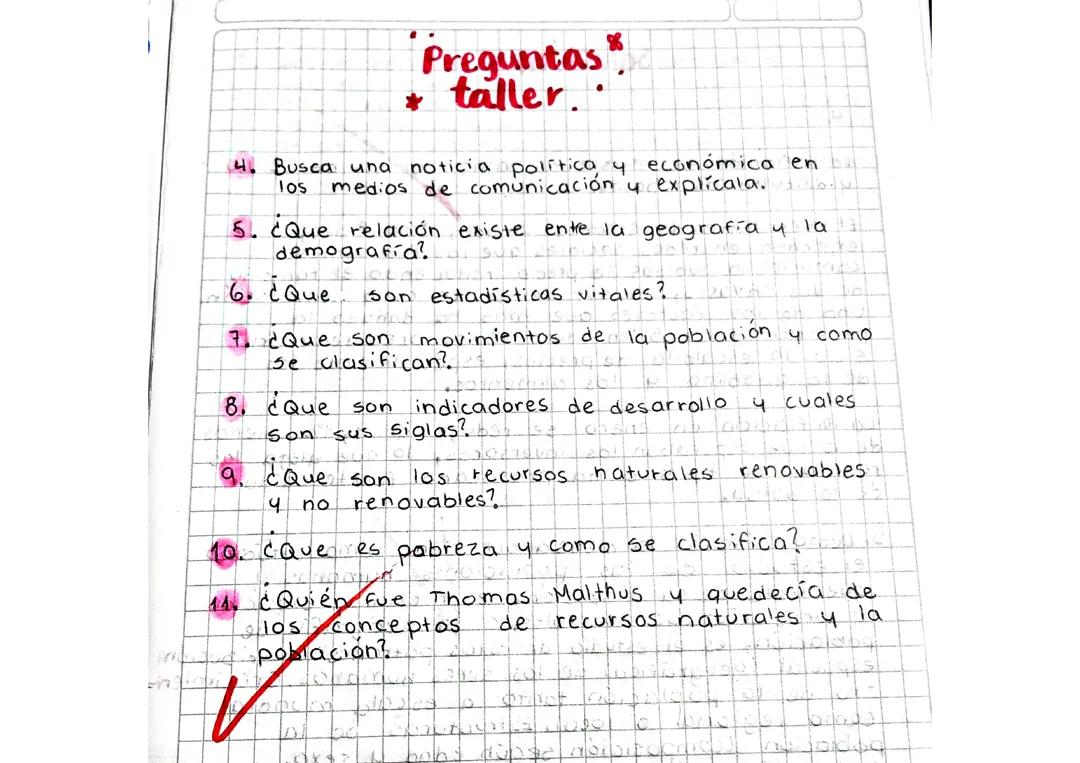 Preguntas
taller.
4. Busca una noticia política y económica en
los medios de comunicación y explícala.
5. ¿Que relación existe entre la geografía y la
demografía?
6. ¿Que son estadísticas vitales?
7. ¿Que son movimientos de la población y como
se clasifican?
8. ¿Que son indicadores de desarrollo y cuales
son sus siglas?
9. ¿Que son los recursos naturales renovables
y no renovables?
10. ¿Que es pobreza y como se clasifica?
11. ¿Quién fue Thomas Malthus y que decía de
los conceptos de recursos naturales y la
población?